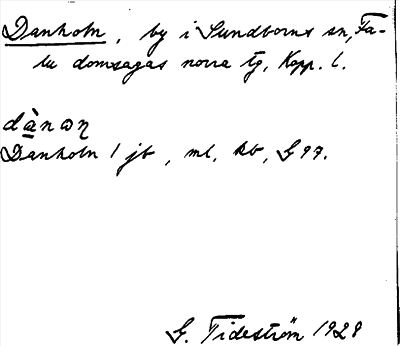 Danholn, by i Sundborns sn, Fa-
lu domsagas norra tg, Kopp. l.
dànǝn
Danholn 1 jb, ml, kb, G 97.
G. Tideström 1928